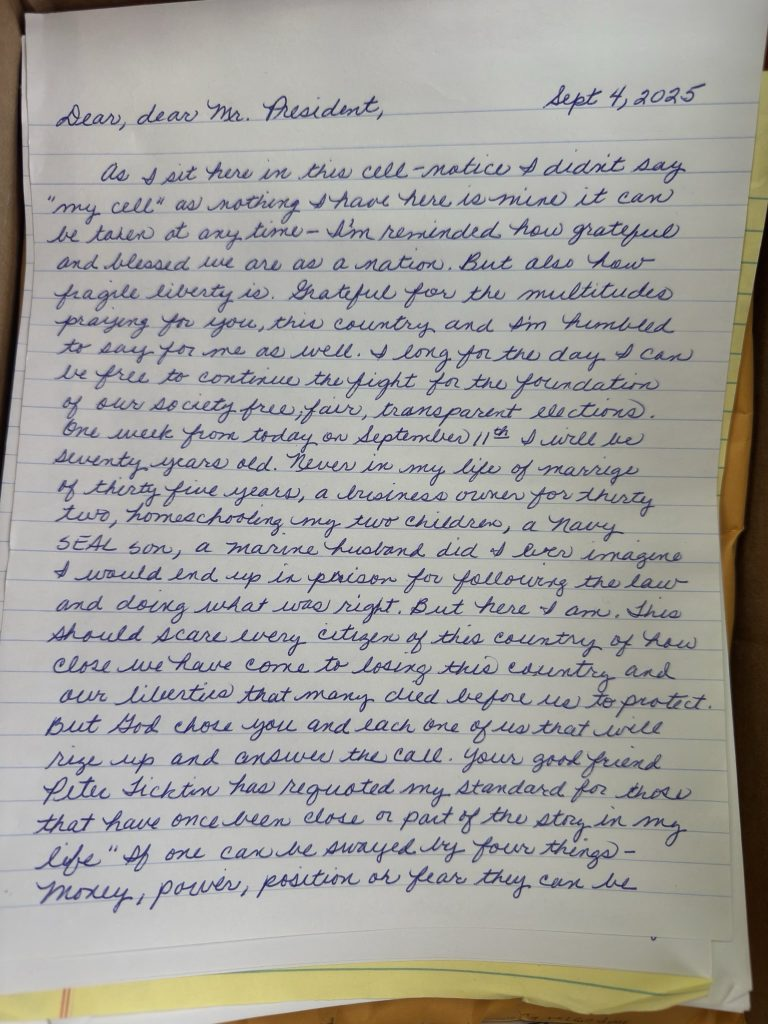 Sept 4, 2025
Dear, dear Mr. President,
As I sit here in this cell-notice I didn't say
"my cell" as nothing I have here is mine it can
be taken at any time - I'm reminded how grateful
and blessed we are as a nation. But also how
fragile liberty is. Grateful for the multitudes
praying for you, this country and I'm humbled
to say for me as well. I long for the day I can
be free to continue the fight for the foundation
of our society free, fair, transparent elections.
One week from today on September 11th I will be
seventy years old. Never in my life of marrige
of thirty five years, a business owner for thirty
two, homeschooling my two children, a Navy
SEAL son, a marine husband did I ever imagine
I would end up in prison for following the law
and doing what was right. But here I am. This
should scare every citizen of this country of how
close we have come to losing this country and
our liberties that many died before us to protect.
But God chose you and each one of us that will
rize up and answer the call. Your good friend
Peter Ticktin has requoted my standard for those
that have once been close or part of the story in my
life "If one can be swayed by four things -
Money, power, position or fear they can be